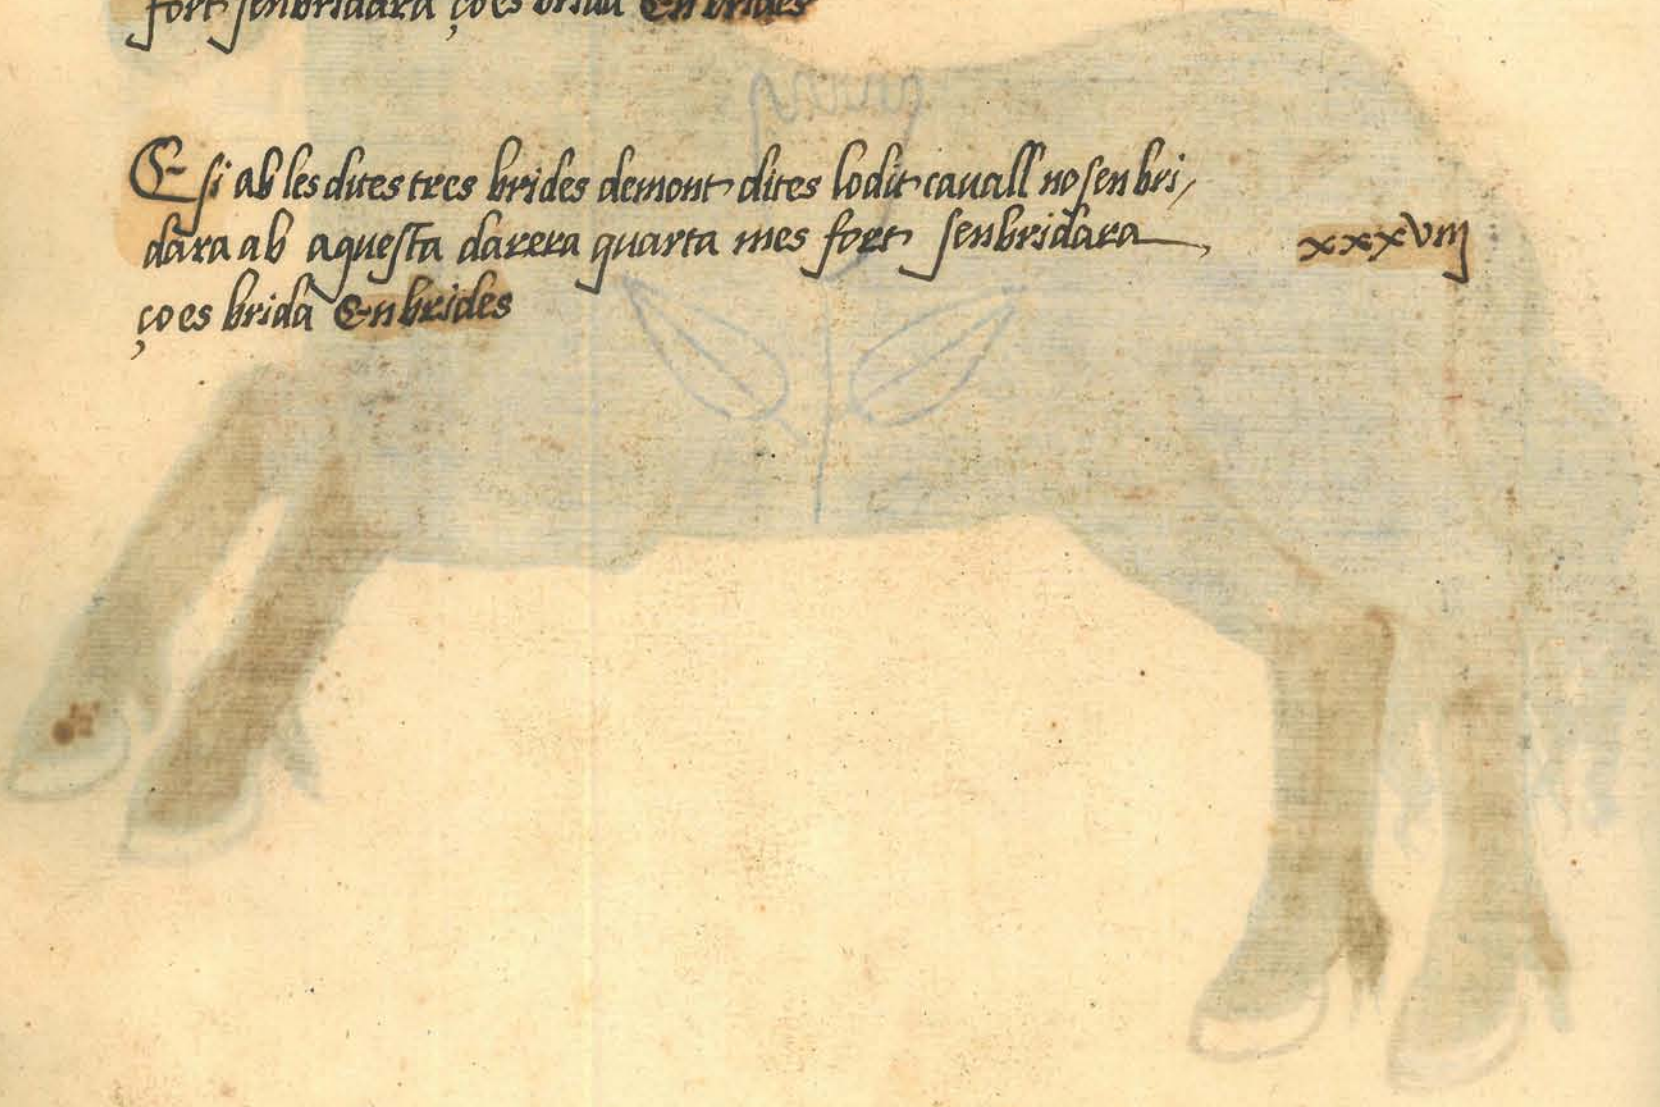 fort senbridara ço es brida En brides
E si ab les dites tres brides demont dites lodit cauall no sen bri/
dara ab aquesta darera quarta mes fort senbridara xxxviij
ço es brida En brides